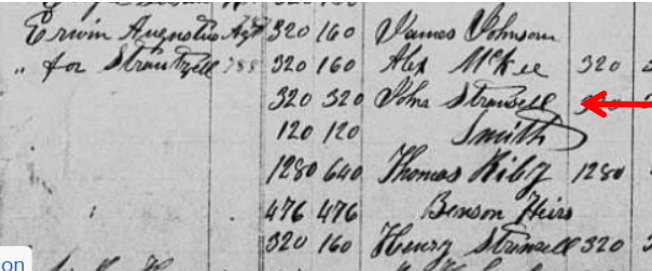 Erwin Augustus Agt 320 160 James Johnson
" for Strantzell 288 320 160 Alex McKee 320
320 320 John Stransell 320
120 120 Smith
1280 640 Thomas 1280
476 476 Benson Heirs
320 160 Henry Stransell 320
on